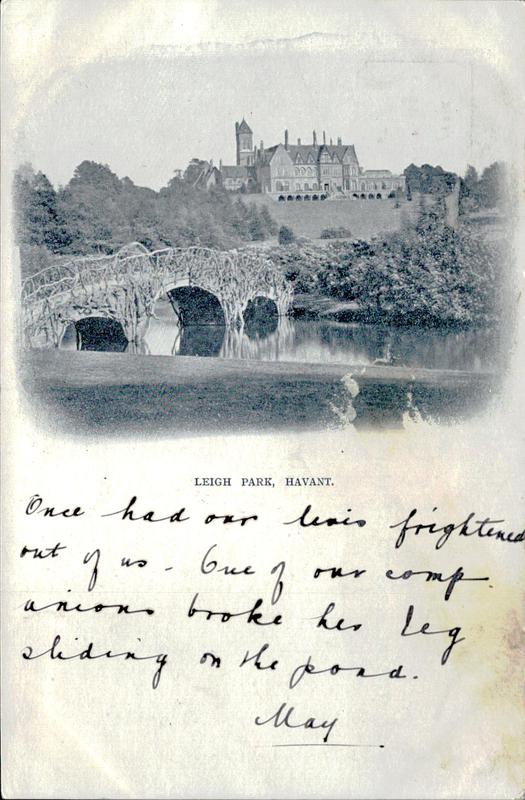 LEIGH PARK, HAVANT.
Once had our lives frightened
out of us - One of our comp
anions broke her leg
sliding on the pond.
May